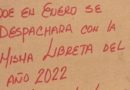 QUE EN ENERO SE
DESPACHARA CON LA
MISMA LIBRETA DEL
AÑO 2022